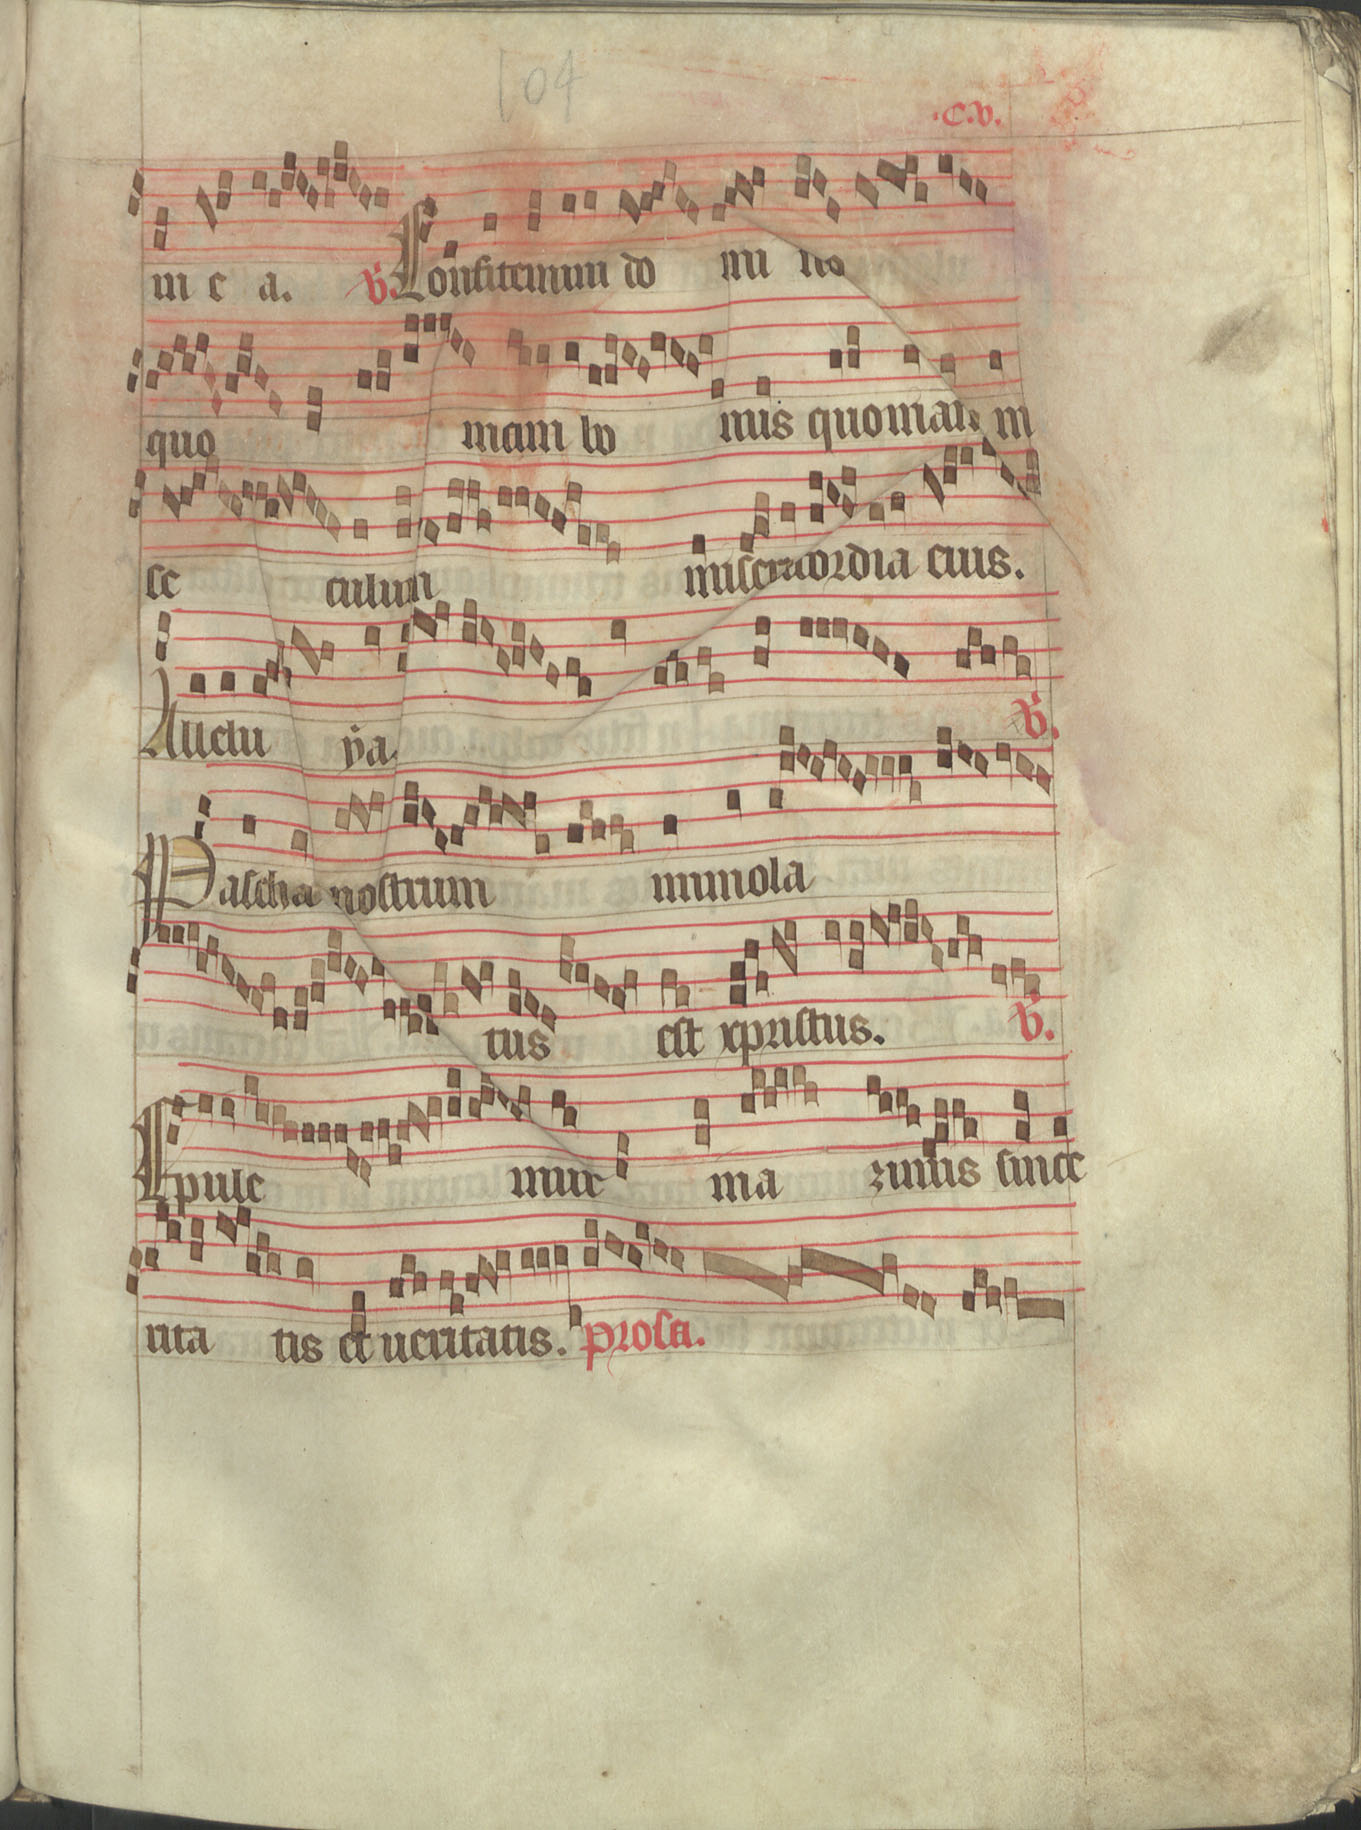 104
.c.v.
in e a. V. Confitemini do mi no
quo niam bo nus quoniam in
se culum misericordia eius.
Alleluia ya. V.
Pascha nostrum immola
tus est xpristus. V.
Epule mur ma zimis since
rita tis et ueritatis. Prosa.